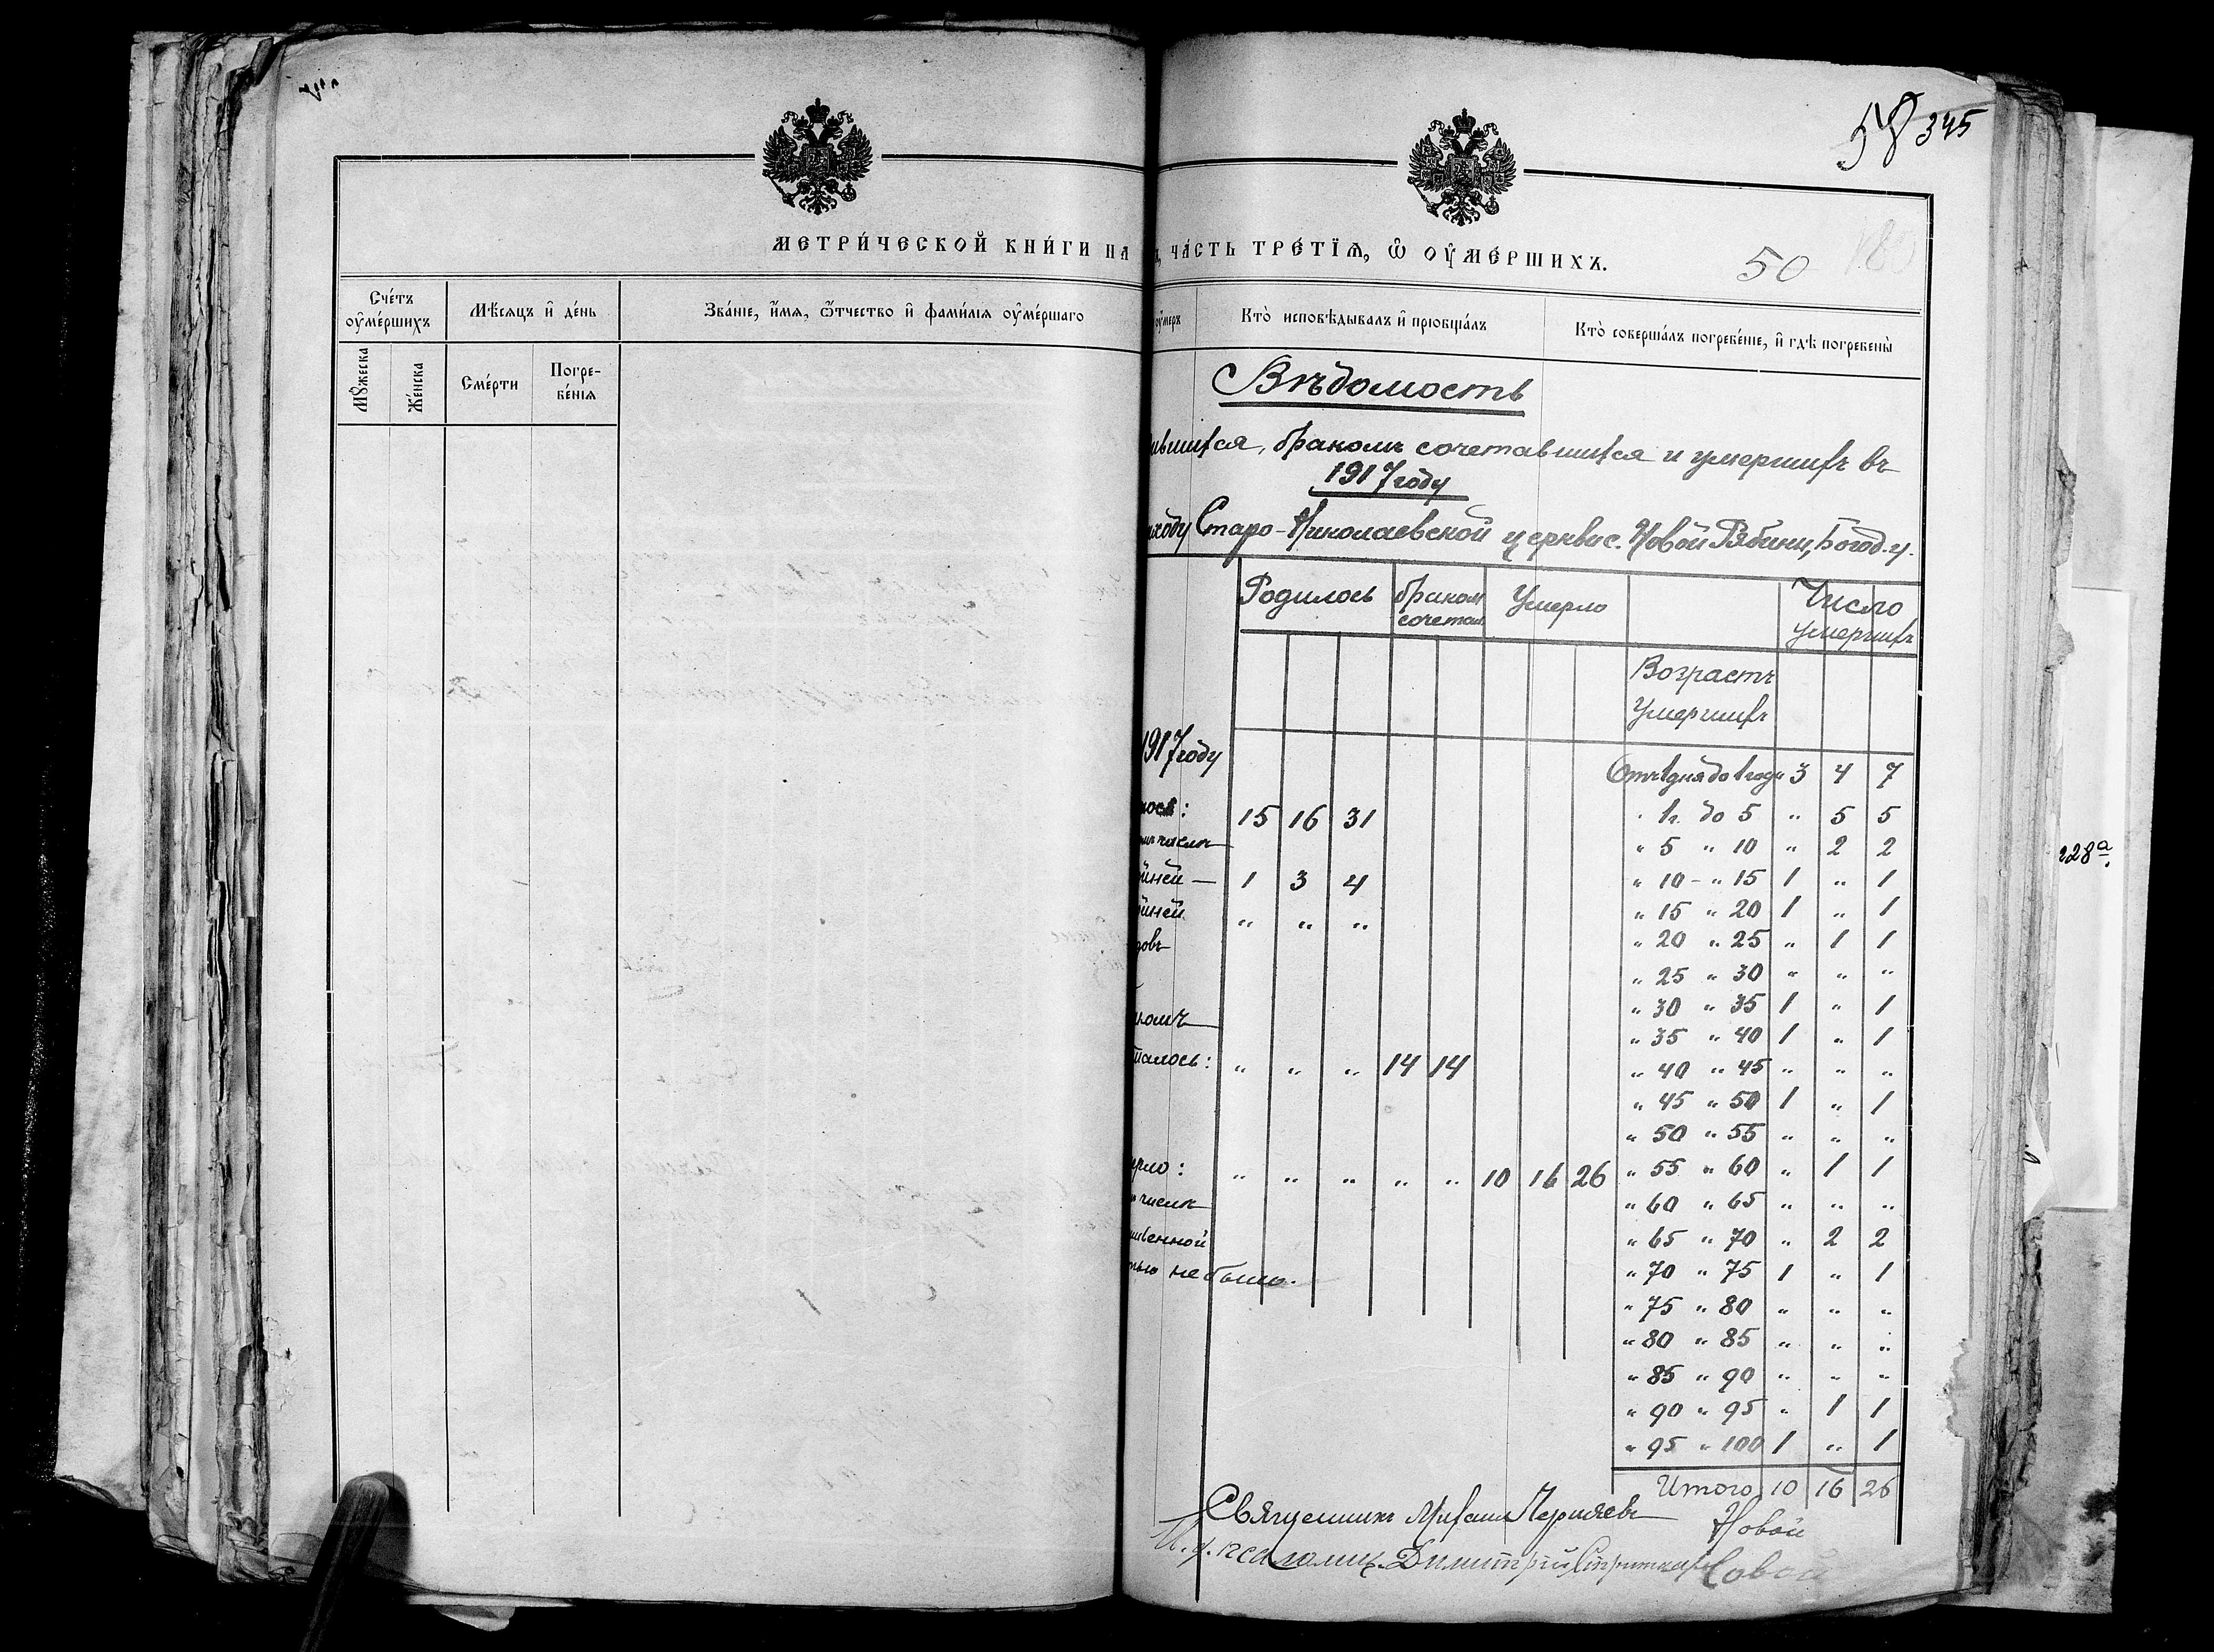 58 345
МЕТРИ́ЧЕСКОЙ КНИ́ГИ НА
Ъ, ЧА́СТЬ ТРЕ́ТЇѦ, Ѡ ОУ҆МЕ́РШИХЪ.
50
180
Сче́тъ оу҆ме́ршихъ
Мѣ́сѧцъ и҆ де́нь
Зва́нїе, и҆́мѧ, ѻ҆́тчество и҆ фами́лїѧ оу҆ме́ршаго
Мꙋ́жеска
Же́нска
Сме́рти
Погре-
бе́нїѧ
оу҆́меръ
Кто̀ исповѣ́дывалъ и҆ прїобща́лъ
Кто̀ соверша́лъ погребе́нїе, и҆ гдѣ̀ погребены̀
Вѣдомость
ившихся, бракомъ сочетавшихся и умершихъ въ
1917 году
иходу Старо-Николаевской церкви с. Новой Рябины, Богод. у.
Родилось
браком сочетал.
Умерло
Число умершихъ
Возрастъ
Умершихъ
1917 году
Отъ 1 дня до 1 года 3 4 7
лось: 15 16 31
" 1 г. до 5 " 5 5
числѣ
" 5 " 10 " 2 2
йней — 1 3 4
" 10 - " 15 1 " 1
йней " " "
" 15 " 20 1 " 1
довъ
" 20 " 25 " 1 1
" 25 " 30 " " "
" 30 " 35 1 " 1
комъ
" 35 " 40 1 " 1
талось: " " " 14 14
" 40 " 45 " " "
" 45 " 50 1 " 1
" 50 " 55 " " "
рло: " " " " " 10 16 26
" 55 " 60 " 1 1
числѣ
" 60 " 65 " " "
твенной
" 65 " 70 " 2 2
тью не было.
" 70 " 75 1 " 1
" 75 " 80 " " "
" 80 " 85 " " "
" 85 " 90 " " "
" 90 " 95 " 1 1
" 95 " 100 1 " 1
Итого 10 16 26
Священникъ Михаил Черняевъ
Новой
И. д. псаломщ. Димитрій
228а.